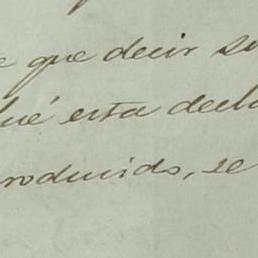 e que decir su
ué esta decla
roducido, se